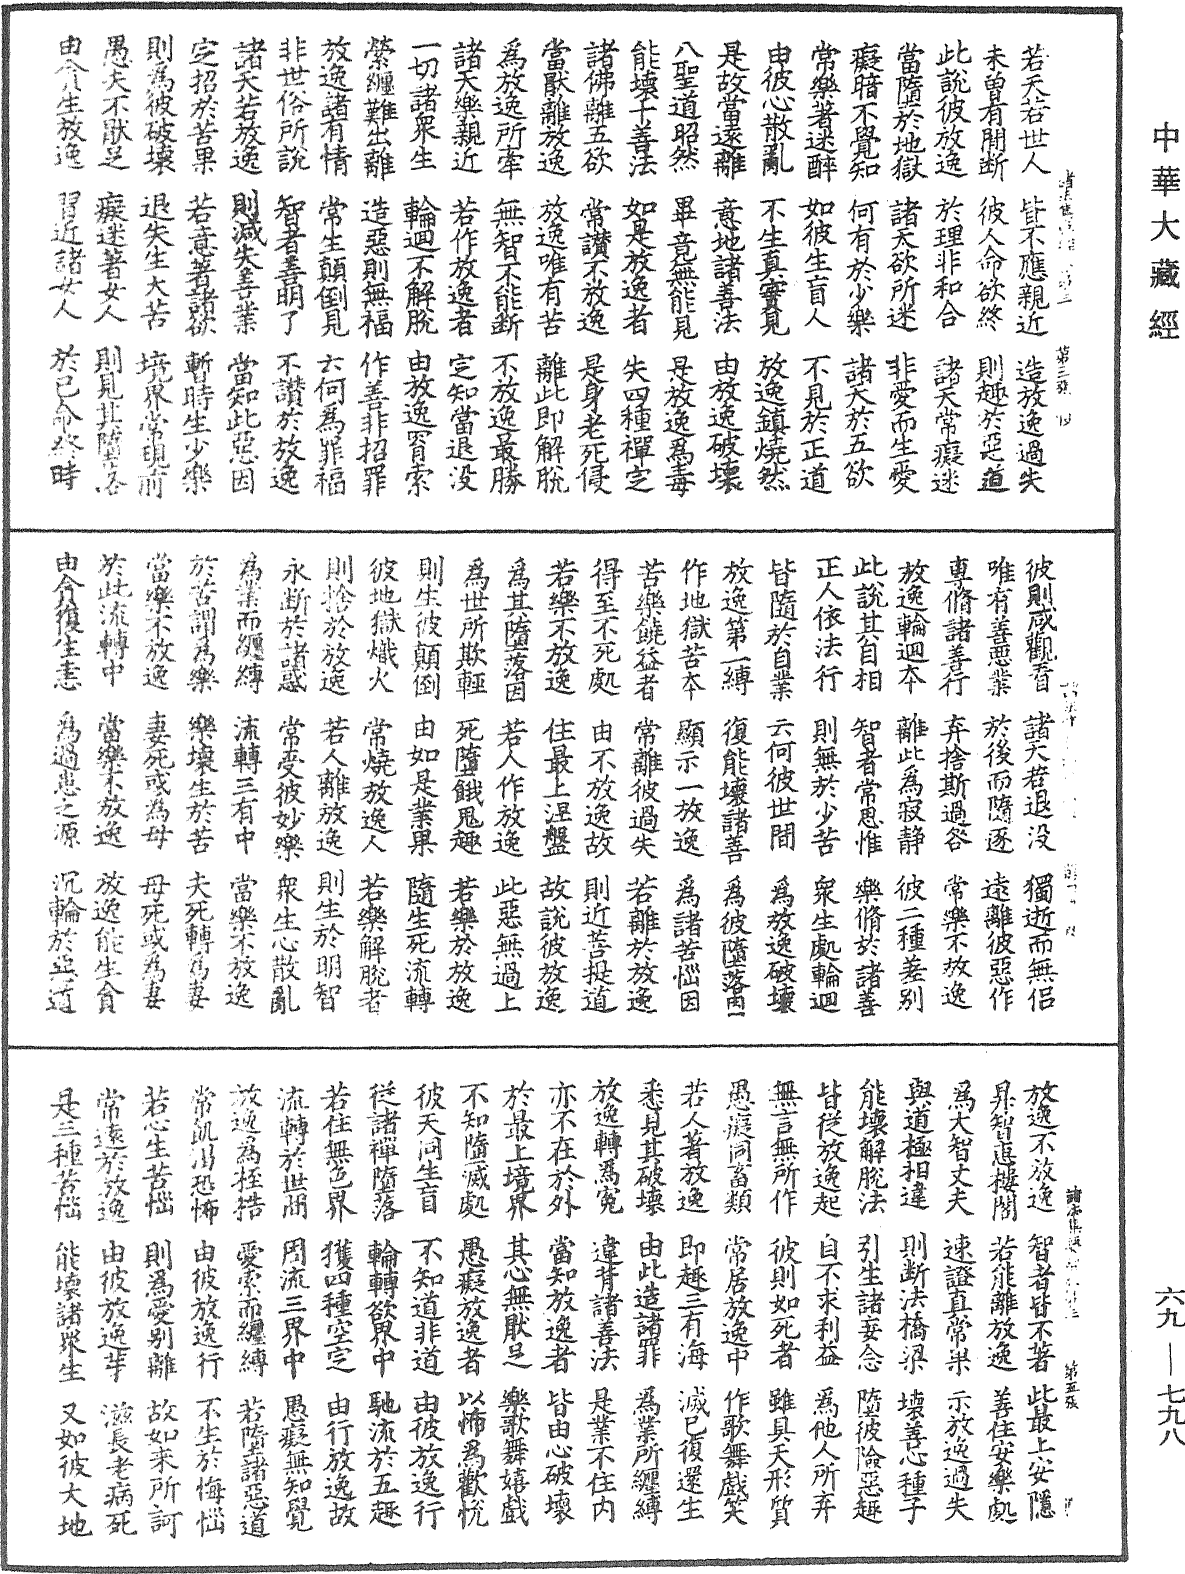 中華大藏經
若天若世人 皆不應親近 造放逸過失
未曾有閒斷 彼人命欲終 則趣於惡道
此說彼放逸 於理非和合 諸天常癡迷
當墮於地獄 諸天欲所迷 非愛而生愛
癡暗不覺知 何有於少樂 諸天於五欲
常樂著迷醉 如彼生盲人 不見於正道
由彼心散亂 不生真實見 放逸鎮燒然
是故當遠離 意地諸善法 由放逸破壞
八聖道昭然 畢竟無能見 是放逸為毒
能壞十善法 如是放逸者 失四種禪定
諸佛離五欲 常讚不放逸 是身老死侵
當厭離放逸 放逸唯有苦 離此即解脫
為放逸所牽 無智不能斷 不放逸最勝
諸天樂親近 若作放逸者 定知當退沒
一切諸眾生 輪迴不解脫 由放逸罥索
縈纏難出離 造惡則無福 作善非招罪
放逸諸有情 常生顛倒見 云何為罪福
非世俗所說 智者善明了 不讚於放逸
諸天若放逸 則減失善業 當知此惡因
定招於苦果 若意著諸欲 暫時生少樂
則為彼破壞 退失生大苦 境界常現前
愚夫不猒足 癡迷著女人 則見其墮落
由貪生放逸 習近諸女人 於已命終時
彼則咸觀看 諸天若退沒 獨逝而無侶
唯有善惡業 於後而隨逐 遠離彼惡作
專脩諸善行 弃捨斯過咎 常樂不放逸
放逸輪迴本 離此為寂靜 彼二種差別
此說其自相 智者常思惟 樂脩於諸善
正人依法行 則無於少苦 眾生處輪迴
皆隨於自業 云何彼世間 為放逸破壞
放逸第一縛 復能壞諸善 為彼墮落因
作地獄苦本 顯示一放逸 為諸苦惱因
苦樂饒益者 常離彼過失 若離於放逸
得至不死處 由不放逸故 則近菩提道
若樂不放逸 住最上涅盤 故說彼放逸
為其墮落因 若人作放逸 此惡無過上
為世所欺輕 死墮餓鬼趣 若樂於放逸
則生彼顛倒 由如是業果 隨生死流轉
彼地獄熾火 常燒放逸人 若樂解脫者
則捨於放逸 若人離放逸 則生於明智
永斷於諸惑 常受彼妙樂 眾生心散亂
為業而纏縛 流轉三有中 當樂不放逸
於苦謂為樂 樂壞生於苦 夫死轉為妻
當樂不放逸 妻死或為母 母死或為妻
於此流轉中 當樂不放逸 放逸能生貪
由貪復生恚 為過患之源 沉輪於惡道
放逸不放逸 智者皆不著 此最上安隱
昇智慧樓閣 若能離放逸 善住安樂處
為大智丈夫 速證真常果 示放逸過失
與道極相違 則斷法橋梁 壞善心種子
能壞解脫法 引生諸妄念 墮彼險惡趣
皆從放逸起 自不求利益 為他人所弃
無言無所作 彼則如死者 雖具天形質
愚癡同畜類 常居放逸中 作歌舞戲笑
若人著放逸 即趣三有海 滅已復還生
悉見其破壞 由此造諸罪 為業所纏縛
放逸轉為冤 違背諸善法 是業不住內
亦不在於外 當知放逸者 皆由心破壞
於最上境界 其心無猒足 樂歌舞嬉戲
不知墮滅處 愚癡放逸者 以怖為歡悅
彼天同生盲 不知道非道 由彼放逸行
從諸禪墮落 輪轉欲界中 馳流於五趣
若住無色界 獲四種空定 由行放逸故
流轉於世間 周流三界中 愚癡無知覺
放逸為桎梏 愛索而纏縛 若墮諸惡道
常飢渴恐怖 由彼放逸行 不生於悔惱
若心生苦惱 則為愛別離 故如來所訶
常遠於放逸 由彼放逸芽 滋長老病死
是三種苦惱 能壞諸眾生 又如彼大地
六九—七九八